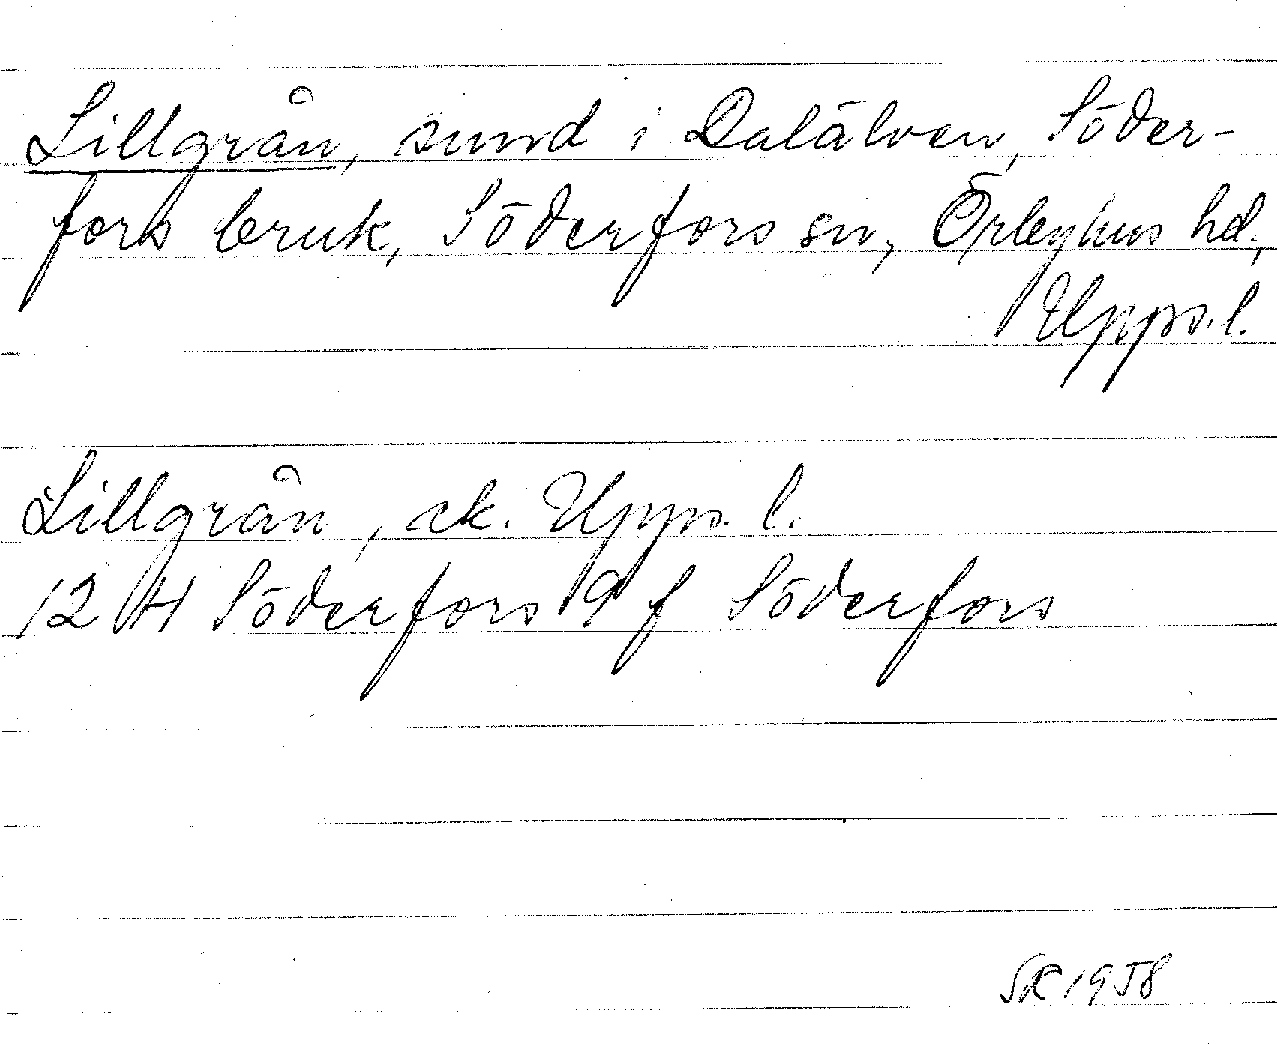 Lillgrån, sund i Dalälven, Söder-
fors bruk, Söderfors sn, Örbyhus hd,
Upps. l.
Lillgrån, ek. Upps. l.
12 H Söderfors 9 f Söderfors
SR 1958